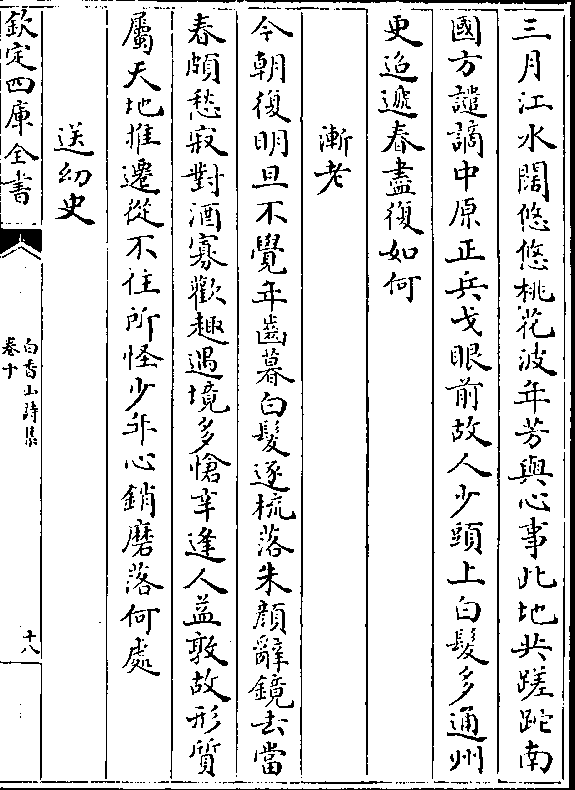 三月江水闊悠悠桃花波年芳與心事此地共蹉跎南
國方譴謫中原正兵戈眼前故人少頭上白髮多通州
更迢遞春盡復如何
漸老
今朝復明旦不覺年齒暮白髮逐梳落朱顔辭鏡去當
春頗愁寂對酒寡歡趣遇境多愴辛逢人益敦故形質
屬天地推遷從不住所怪少年心銷磨落何處
送幼史
欽定四庫全書
白香山詩集
卷十
十八